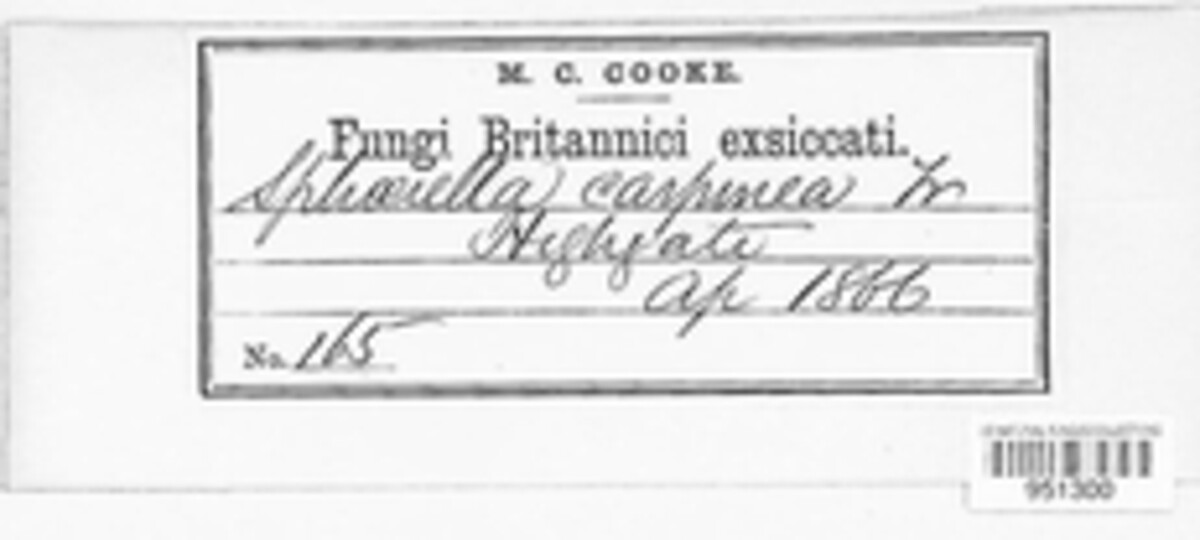 M. C. COOKE.
Fungi Britannici exsiccati.
Sphæriella carpinea Fr
Highgate
Ap 1866
No. 165
951300